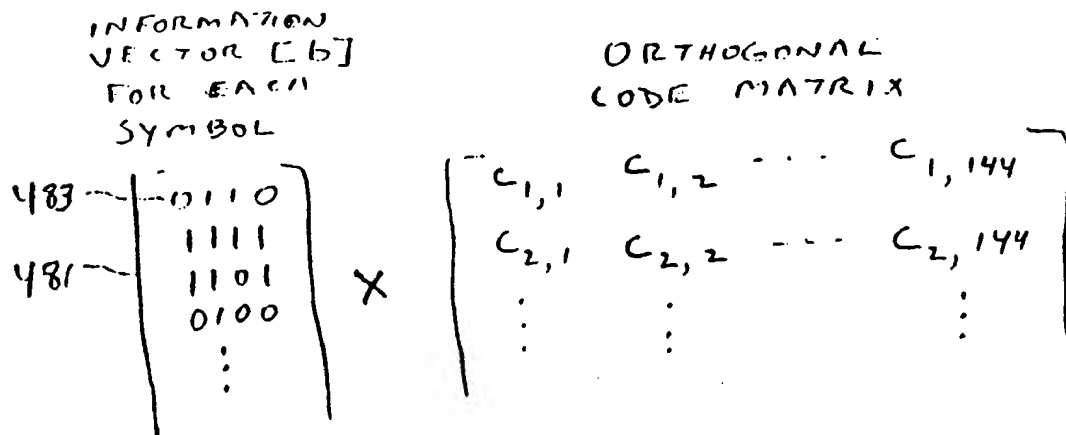 INFORMATION
VECTOR [b]
FOR EACH
SYMBOL
ORTHOGONAL
CODE MATRIX
483 0110
1111
481 1101
0100
⋮
X
C1,1 C1,2 ... C1,144
C2,1 C2,2 ... C2,144
⋮ ⋮ ⋮